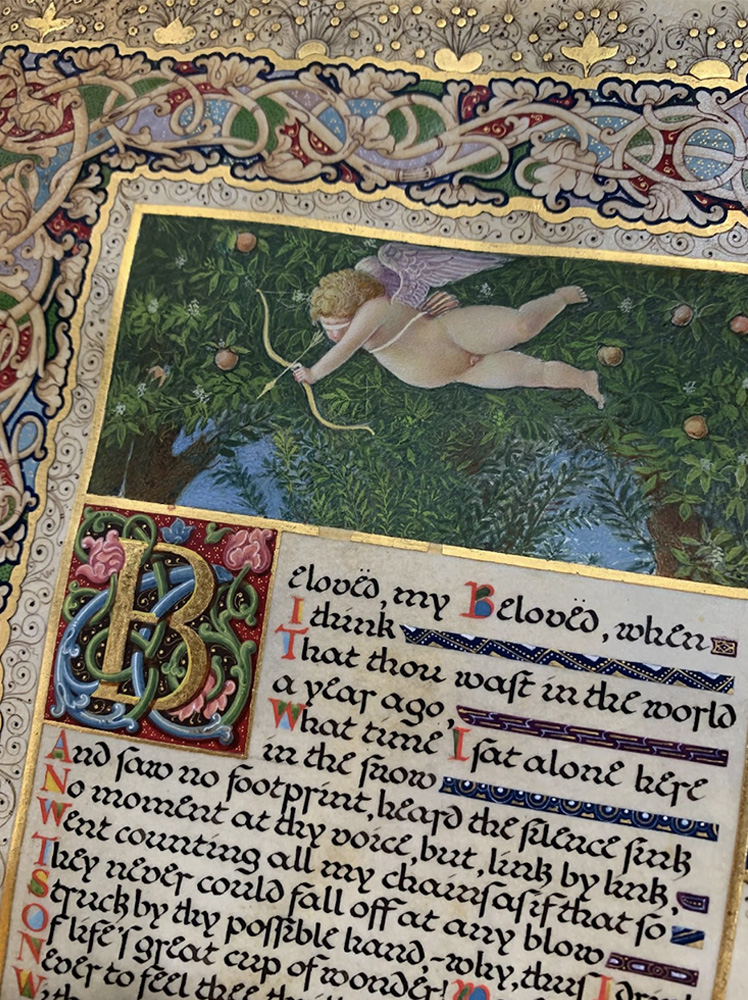 Belovëd, my Belovëd, when
I think
That thou wast in the world
a year ago,
What time I sat alone here
in the snow
And saw no footprint, heard the silence sink
No moment at thy voice, but, link by link,
Went counting all my chains as if that so
They never could fall off at any blow
Struck by thy possible hand,-why, thus I
Of life's great cup of wonder!
Never to feel thee